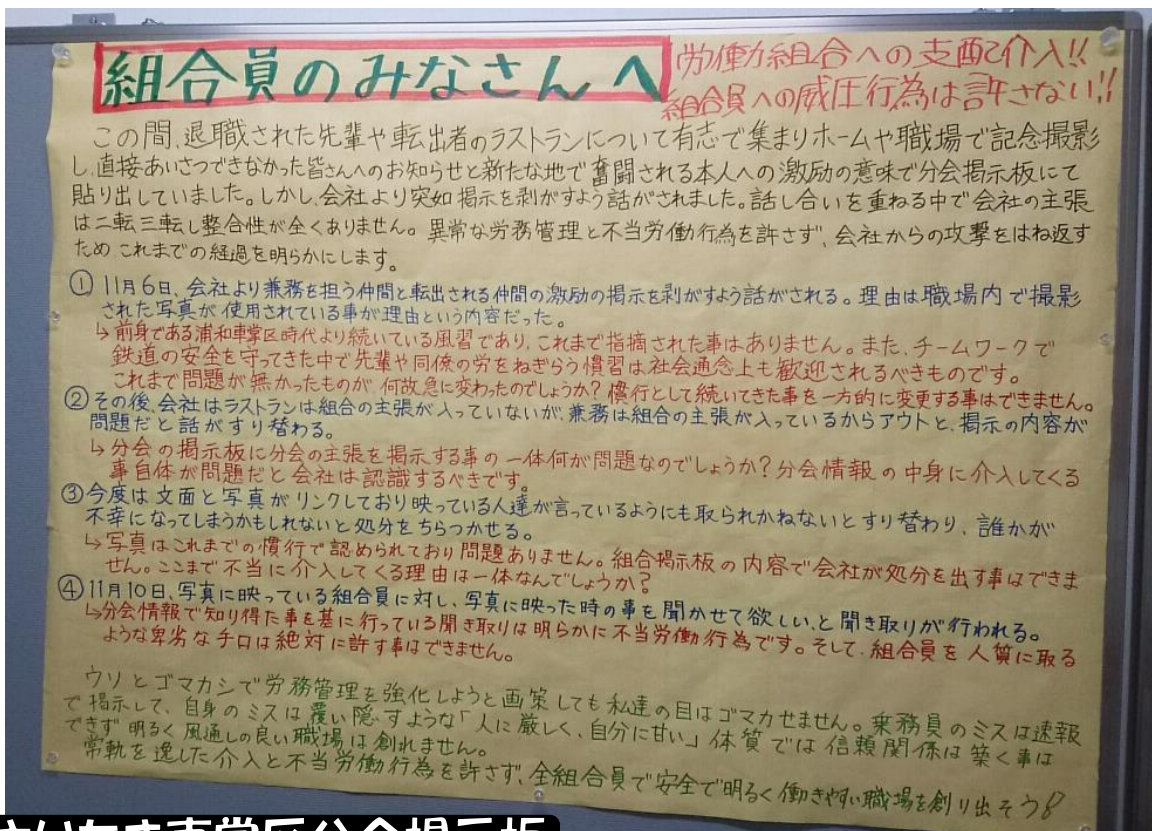 組合員のみなさんへ
労働組合への支配介入!!
組合員への威圧行為は許さない!!
この間、退職された先輩や転出者のラストランについて有志で集まりホームや職場で記念撮影
し、直接あいさつできなかった皆さんへのお知らせと新たな地で奮闘される本人への激励の意味で分会掲示板にて
貼り出していました。しかし、会社より突如掲示を剥がすよう話がされました。話し合いを重ねる中で会社の主張
は二転三転し整合性が全くありません。異常な労務管理と不当労働行為を許さず、会社からの攻撃をはね返す
ためこれまでの経過を明らかにします。
① 11月6日、会社より兼務を担う仲間と転出される仲間の激励の掲示を剥がすよう話がされる。理由は職場内で撮影
された写真が使用されている事が理由という内容だった。
↳前身である浦和車掌区時代より続いている風習であり、これまで指摘された事はありません。また、チームワークで
鉄道の安全を守ってきた中で先輩や同僚の労をねぎらう慣習は社会通念上も歓迎されるべきものです。
これまで問題が無かったものが、何故急に変わったのでしょうか?慣行として続いてきた事を一方的に変更する事はできません。
② その後、会社はラストランは組合の主張が入っていないが、兼務は組合の主張が入っているからアウトと、掲示の内容が
問題だと話がすり替わる。
↳分会の掲示板に分会の主張を掲示する事の一体何が問題なのでしょうか?分会情報の中身に介入してくる
事自体が問題だと会社は認識するべきです。
③ 今度は文面と写真がリンクしており映っている人達が言っているようにも取られかねないとすり替わり、誰かが
不幸になってしまうかもしれないと処分をちらつかせる。
↳写真はこれまでの慣行で認められており問題ありません。組合掲示板の内容で会社が処分を出す事はできま
せん。ここまで不当に介入してくる理由は一体なんでしょうか?
④ 11月10日、写真に映っている組合員に対し、写真に映った時の事を聞かせて欲しいと聞き取りが行われる。
↳分会情報で知り得た事を基に行っている聞き取りは明らかに不当労働行為です。そして、組合員を人質に取る
ような卑劣なテ口は絶対に許す事はできません。
ウソとゴマカシで労務管理を強化しようと画策しても私達の目はゴマカせません。乗務員のミスは速報
で掲示して、自身のミスは覆い隠すような「人に厳しく、自分に甘い」体質では信頼関係は築く事は
できず明るく風通しの良い職場は創れません。
常軌を逸した介入と不当労働行為を許さず、全組合員で安全で明るく働きやすい職場を創り出そう!
さいたま車掌区分会掲示板